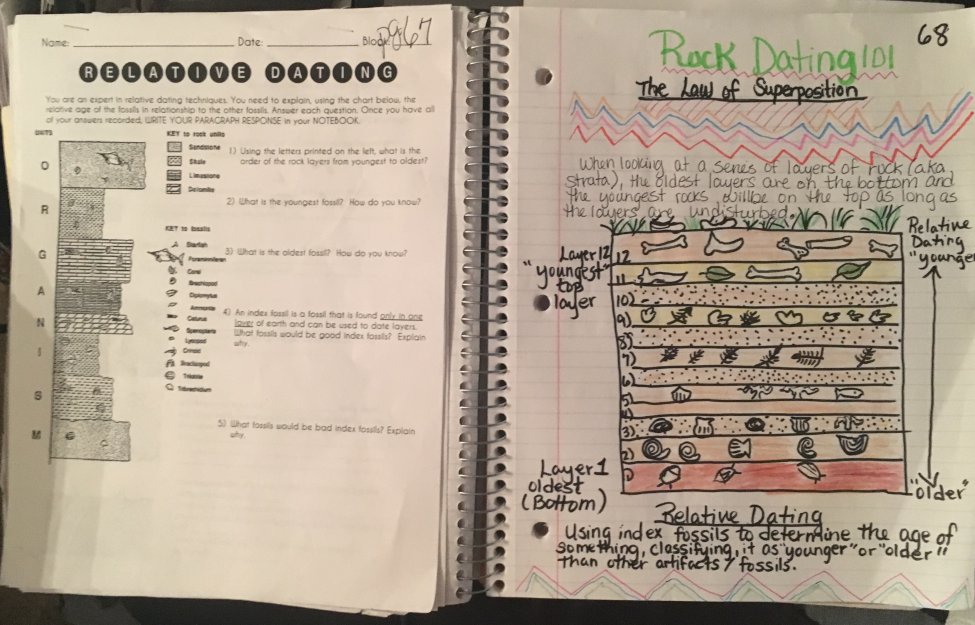 Name: ____________ Date: ____________ Block: pg. 67
RELATIVE DATING
You are an expert in relative dating techniques. You need to explain, using the chart below, the
relative age of the fossils in relationship to the other fossils. Answer each question. Once you have all
of your answers recorded, WRITE YOUR PARAGRAPH RESPONSE in your NOTEBOOK.
UNITS
O
R
G
A
N
I
S
M
KEY to rock units
Sandstone
Shale
Limestone
Dolomite
KEY to fossils
Starfish
Foraminiferan
Coral
Brachiopod
Diplomystus
Ammonite
Eurypterid
Lycopod
Crinoid
Brachiopod
Trilobite
Tribrachidium
1) Using the letters printed on the left, what is the
order of the rock layers from youngest to oldest?
2) What is the youngest fossil? How do you know?
3) What is the oldest fossil? How do you know?
4) An index fossil is a fossil that is found only in one
layer of earth and can be used to date layers.
What fossils would be good index fossils? Explain
why.
5) What fossils would be bad index fossils? Explain
why.
68
Rock Dating 101
The Law of Superposition
When looking at a series of layers of rock (aka
strata), the oldest layers are on the bottom and
the youngest rocks will be on the top as long as
the layers are undisturbed.
Layer 12
"youngest"
top
layer
12
11
10)
9)
8)
7)
6)
5)
4)
3)
2)
1)
Relative
Dating
"younger
"older"
Layer 1
oldest
(Bottom)
Relative Dating
Using index fossils to determine the age of
something, classifying it as "younger" or "older"
than other artifacts / fossils.